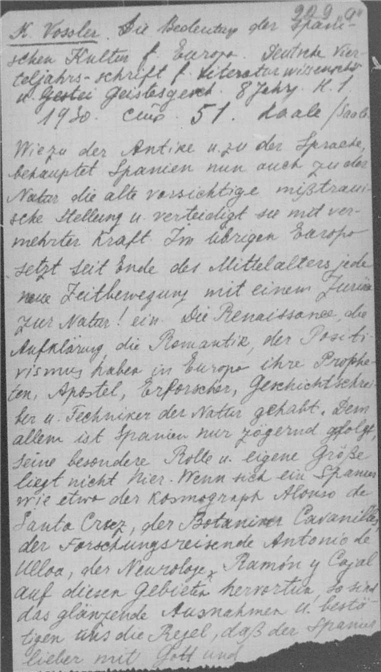 229 a
K. Vossler. Die Bedeutung der spani-
schen Kultur f. Europa. Deutsche Vier-
teljahrs-schrift f. Literaturwissensch.
u. Geistesgesch. 8 Jahrg. H. 1
1930. 51. Haale /Saale
Wie zu der Antike u. zu der Sprache,
behauptet Spanien nun auch zu der
Natur die alte vorsichtige mißtraui-
sche Stellung u. verteidigt sie mit ver-
mehrter Kraft. Im übrigen Europa
setzt seit Ende des Mittelalters jede
neue Zeitbewegung mit einem Zurück
zur Natur! ein. Die Renaissance, die
Aufklärung die Romantik, der Positi-
vismus haben in Europa ihre Prophe-
ten, Apostel, Erforscher, Geschichtschrei-
ber u. Techniker der Natur gehabt. Dem
allem ist Spanien nur zögernd gefolgt,
seine besondere Rolle u. eigene Größe
liegt nicht hier. Wenn sich ein Spanier
wie etwa der Kosmograph Alonso de
Santa Cruz, der Botaniker Cavanilles,
der Forschungsreisende Antonio de
Ulloa, der Neurologe Ramón y Cajal
auf diesen Gebieten hervortun, so sind
das glänzende Ausnahmen u. bestä-
tigen uns die Regel, daß der Spanier
lieber mit Gott und